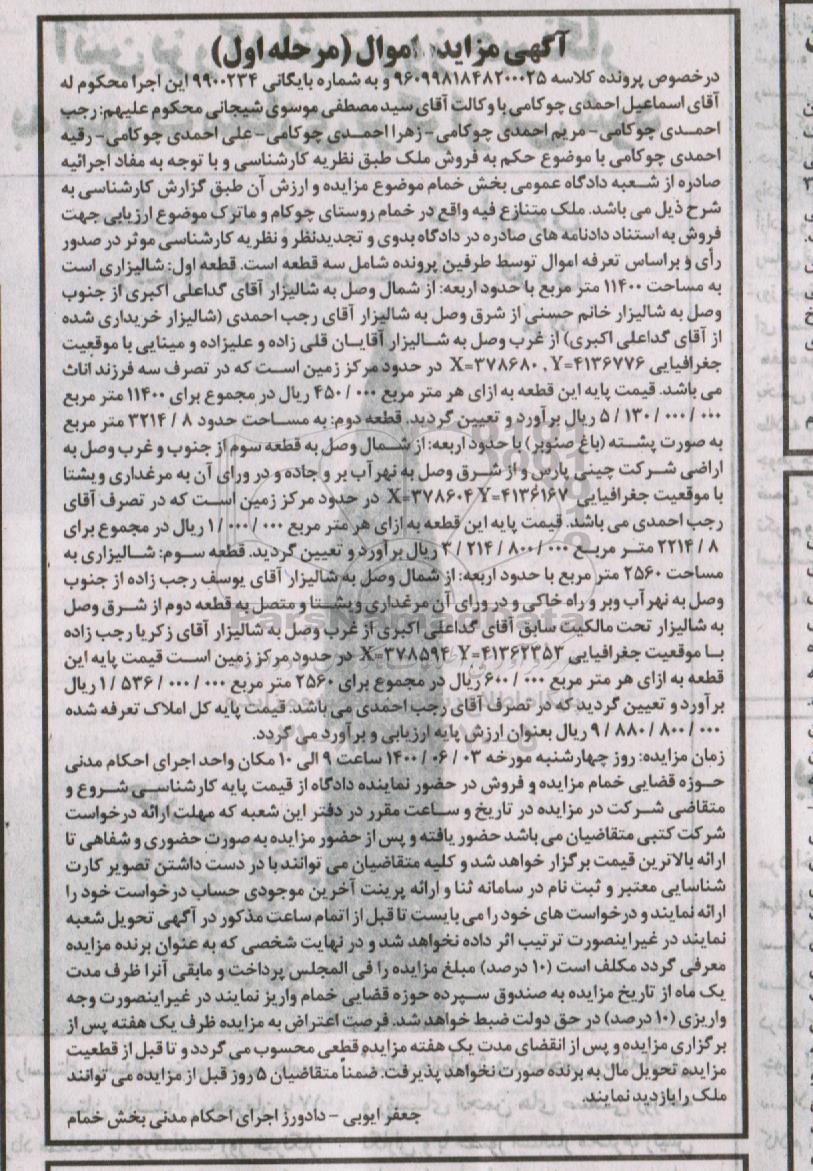 آگهی مزایده اموال (مرحله اول)
درخصوص پرونده کلاسه ۹۶۰۹۹۸۱۸۴۸۲۰۰۰۲۵ و به شماره بایگانی ۹۹۰۰۲۳۴ این اجرا محکوم له
آقای اسماعیل احمدی چوکامی با وکالت آقای سید مصطفی موسوی شیجانی محکوم علیهم: رجب
احمدی چوکامی - مریم احمدی چوکامی - زهرا احمدی چوکامی - علی احمدی چوکامی - رقیه
احمدی چوکامی با موضوع حکم به فروش ملک طبق نظریه کارشناسی و با توجه به مفاد اجرائیه
صادره از شعبه دادگاه عمومی بخش خمام موضوع مزایده و ارزش آن طبق گزارش کارشناسی به
شرح ذیل می باشد. ملک متنازع فیه واقع در خمام روستای چوکام و ماترک موضوع ارزیابی جهت
فروش به استناد دادنامه های صادره در دادگاه بدوی و تجدیدنظر و نظریه کارشناسی موثر در صدور
رأی و براساس تعرفه اموال توسط طرفین پرونده شامل سه قطعه است. قطعه اول: شالیزاری است
به مساحت ۱۱۴۰۰ متر مربع با حدود اربعه: از شمال وصل به شالیزار آقای گداعلی اکبری از جنوب
وصل به شالیزار خانم حسنی از شرق وصل به شالیزار آقای رجب احمدی (شالیزار خریداری شده
از آقای گداعلی اکبری) از غرب وصل به شالیزار آقایان قلی زاده و علیزاده و مینایی با موقعیت
جغرافیایی X=۳۷۸۶۸۰ , Y=۴۱۳۶۷۷۶ در حدود مرکز زمین است که در تصرف سه فرزند اناث
می باشد. قیمت پایه این قطعه به ازای هر متر مربع ۴۵۰/۰۰۰ ریال در مجموع برای ۱۱۴۰۰ متر مربع
۵/۱۳۰/۰۰۰/۰۰۰ ریال برآورد و تعیین گردید. قطعه دوم: به مساحت حدود ۳۲۱۴/۸ متر مربع
به صورت پشته (باغ صنوبر) با حدود اربعه: از شمال وصل به قطعه سوم از جنوب و غرب وصل به
اراضی شرکت چینی پارس و از شرق وصل به نهر آب بر و جاده و در ورای آن به مرغداری ویشتا
با موقعیت جغرافیایی X=۳۷۸۶۰۴ Y=۴۱۳۶۱۶۷ در حدود مرکز زمین است که در تصرف آقای
رجب احمدی می باشد. قیمت پایه این قطعه به ازای هر متر مربع ۱/۰۰۰/۰۰۰ ریال در مجموع برای
۲۲۱۴/۸ متر مربع ۳/۲۱۴/۸۰۰/۰۰۰ ریال برآورد و تعیین گردید. قطعه سوم: شالیزاری به
مساحت ۲۵۶۰ متر مربع با حدود اربعه: از شمال وصل به شالیزار آقای یوسف رجب زاده از جنوب
وصل به نهر آب وبر و راه خاکی و در ورای آن مرغداری ویشتا و متصل به قطعه دوم از شرق وصل
به شالیزار تحت مالکیت سابق آقای گداعلی اکبری از غرب وصل به شالیزار آقای زکریا رجب زاده
با موقعیت جغرافیایی X=۳۷۸۵۹۴ Y=۴۱۳۶۲۳۵۲ در حدود مرکز زمین است قیمت پایه این
قطعه به ازای هر متر مربع ۶۰۰/۰۰۰ ریال در مجموع برای ۲۵۶۰ متر مربع ۱/۵۳۶/۰۰۰/۰۰۰ ریال
برآورد و تعیین گردید که در تصرف آقای رجب احمدی می باشد. قیمت پایه کل املاک تعرفه شده
۹/۸۸۰/۸۰۰/۰۰۰ ریال بعنوان ارزش پایه ارزیابی و برآورد می گردد.
زمان مزایده: روز چهارشنبه مورخه ۱۴۰۰/۰۶/۰۳ ساعت ۹ الی ۱۰ مکان واحد اجرای احکام مدنی
حوزه قضایی خمام مزایده و فروش در حضور نماینده دادگاه از قیمت پایه کارشناسی شروع و
متقاضی شرکت در مزایده در تاریخ و ساعت مقرر در دفتر این شعبه که مهلت ارائه درخواست
شرکت کتبی متقاضیان می باشد حضور یافته و پس از حضور مزایده به صورت حضوری و شفاهی تا
ارائه بالاترین قیمت برگزار خواهد شد و کلیه متقاضیان می توانند با در دست داشتن تصویر کارت
شناسایی معتبر و ثبت نام در سامانه ثنا و ارائه پرینت آخرین موجودی حساب درخواست خود را
ارائه نمایند و درخواست های خود را می بایست تا قبل از اتمام ساعت مذکور در آگهی تحویل شعبه
نمایند در غیراینصورت ترتیب اثر داده نخواهد شد و در نهایت شخصی که به عنوان برنده مزایده
معرفی گردد مکلف است (۱۰ درصد) مبلغ مزایده را فی المجلس پرداخت و مابقی آنرا ظرف مدت
یک ماه از تاریخ مزایده به صندوق سپرده حوزه قضایی خمام واریز نمایند در غیراینصورت وجه
واریزی (۱۰ درصد) در حق دولت ضبط خواهد شد. فرصت اعتراض به مزایده ظرف یک هفته پس از
برگزاری مزایده و پس از انقضای مدت یک هفته مزایده قطعی محسوب می گردد و تا قبل از قطعیت
مزایده تحویل مال به برنده صورت نخواهد پذیرفت. ضمناً متقاضیان ۵ روز قبل از مزایده می توانند
ملک را بازدید نمایند.
جعفر ایوبی - دادورز اجرای احکام مدنی بخش خمام